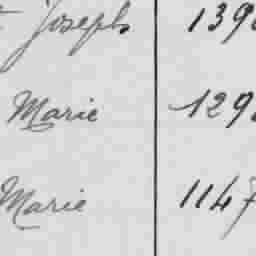 Joseph 139
Marie 129
Marie 1147